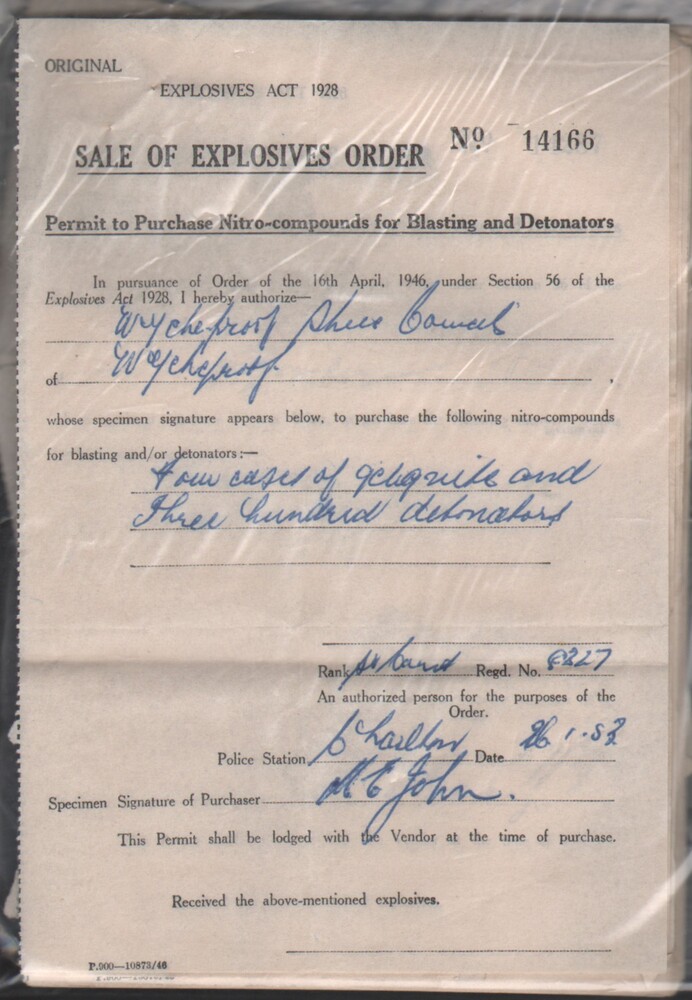 ORIGINAL
EXPLOSIVES ACT 1928
SALE OF EXPLOSIVES ORDER Nº 14166
Permit to Purchase Nitro-compounds for Blasting and Detonators
In pursuance of Order of the 16th April, 1946, under Section 56 of the
Explosives Act 1928, I hereby authorize—
Wycheproof Shire Council
of Wycheproof.
whose specimen signature appears below, to purchase the following nitro-compounds
for blasting and/or detonators:—
Four cases of gelignite and
Three hundred detonators
Rank Regd. No.
An authorized person for the purposes of the
Order.
Police Station Charlton Date
Specimen Signature of Purchaser John.
This Permit shall be lodged with the Vendor at the time of purchase.
Received the above-mentioned explosives.
P.900—10873/46